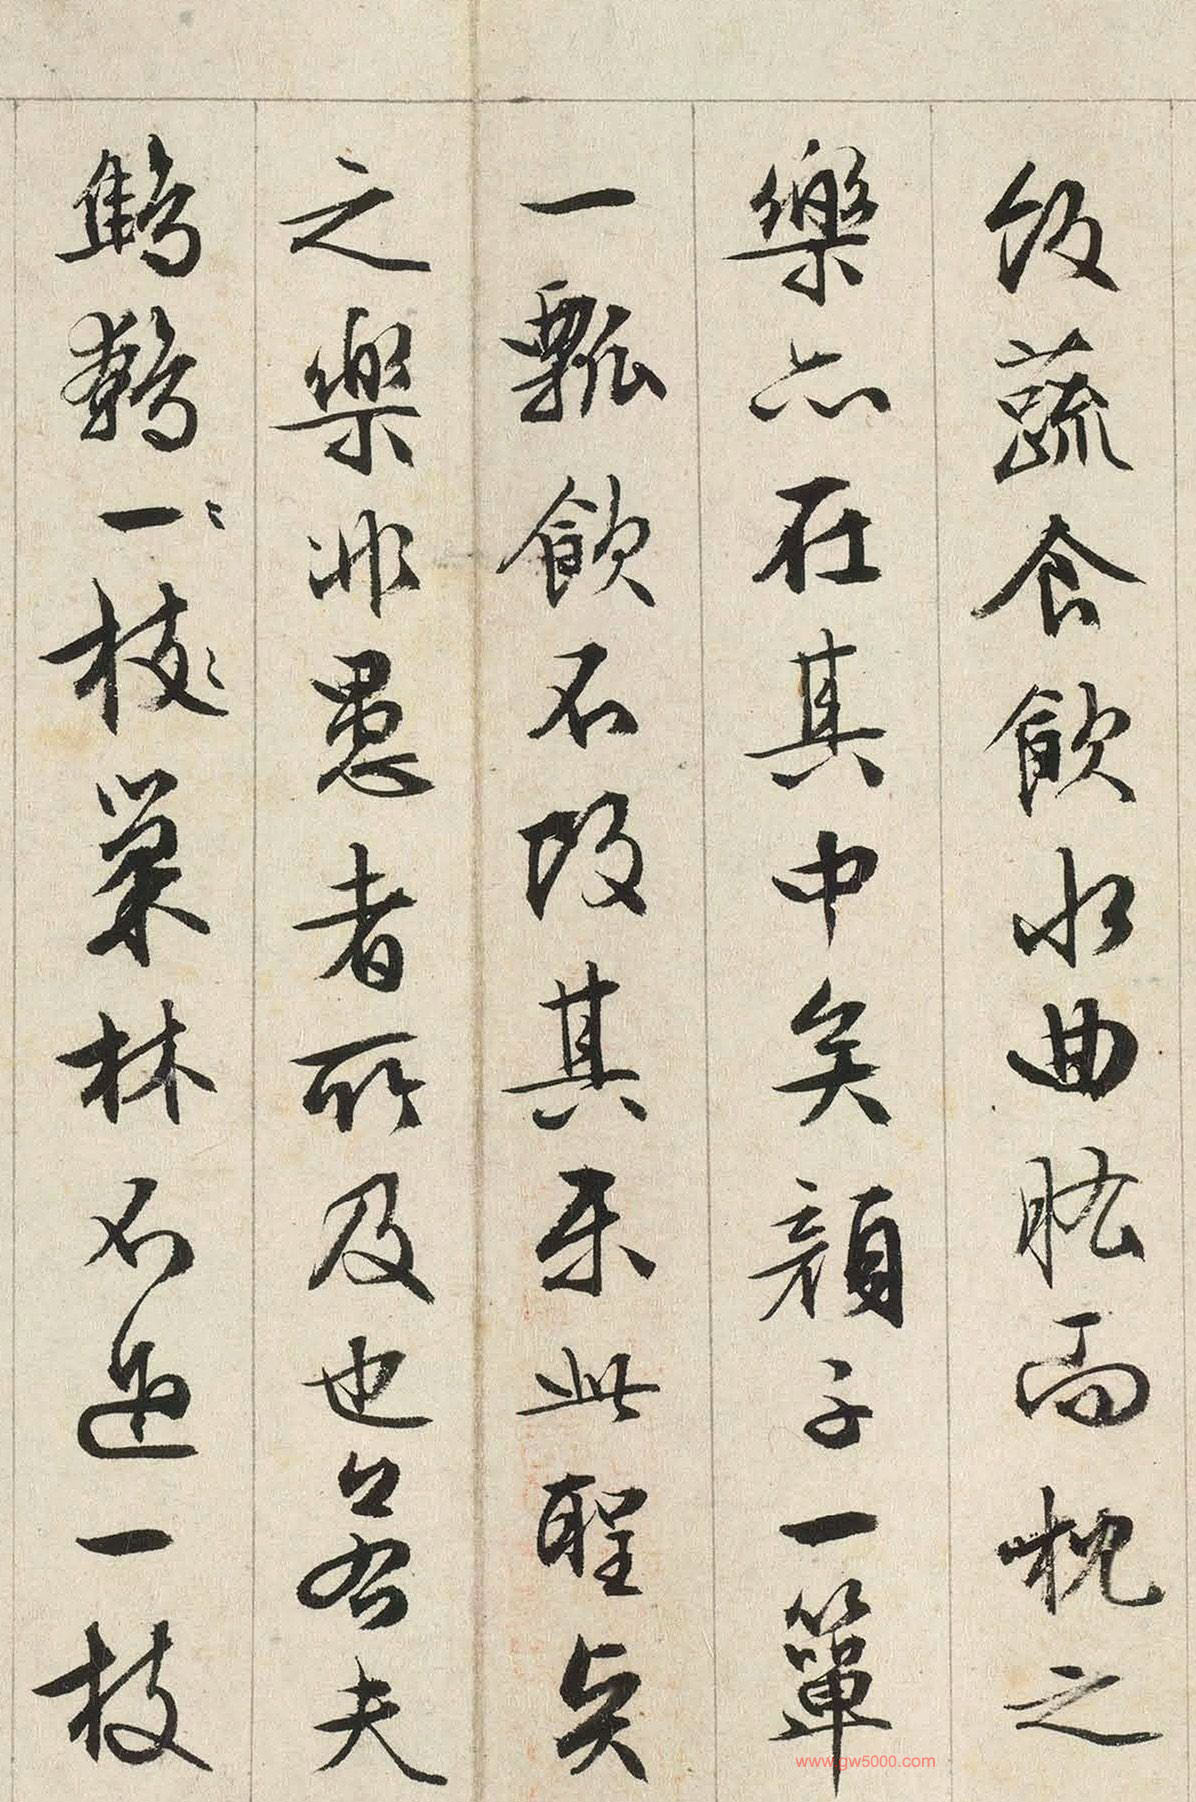 飯蔬食飲水曲肱而枕之
樂亦在其中矣顏子一箪
一瓢飲不改其樂此聖贤
之樂非愚者所及也若夫
鷦鷯一〻枝〻巢林不過一枝
www.gw5000.com